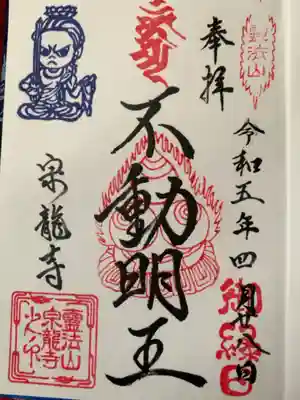 奉拝
霊法山
令和五年四月廿八日
御縁日
不動明王
宗龍寺
霊法山
宗龍寺
之印